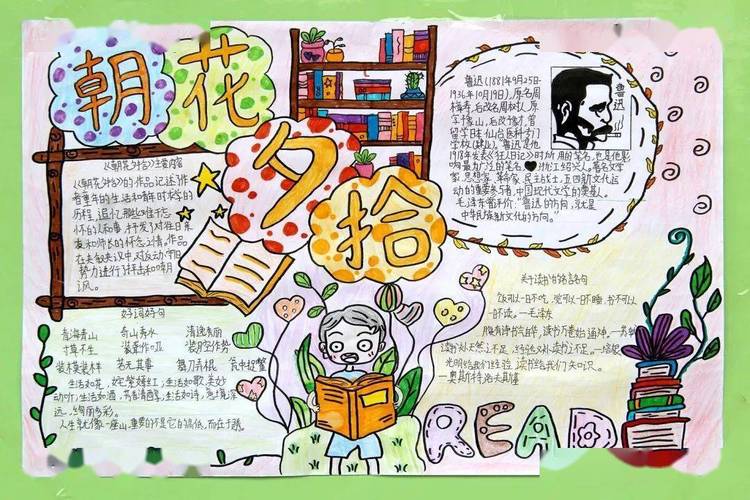 朝花夕拾
《朝花夕拾》主要内容
《朝花夕拾》的作品记述了作
者童年的生活和青年时求学的
历程,追忆那些难于忘
怀的人和事,抒发了对往日亲
友和师长的怀念之情。作品
在夹叙夹议中,对反动、守旧
势力进行了抨击和嘲
讽。
好词好句
青海青山 奇山秀水 清逸秀丽
寸草不生 装腔作
装模装样 若无其事 瓮中捉鳖
生活如花,姹紫嫣红;生活如歌,美妙
动听;生活如酒,芳香清醇;生活如诗,意境深
远,绚丽多彩。
人生就像一座山,重要的不是它的高低,而在于
鲁迅
鲁迅(1881年9月25日-
1936年10月19日),原名周
樟寿,后改名周树人,原
字豫山,后改豫才,曾
留学日本仙台医科专门
学校(肄业)。鲁迅是他
1918年发表《狂人日记》时所用的笔名,也是他影
响最为广泛的笔名,浙江绍兴人。著名文学
家、思想家、革命家、民主战士,五四新文化运
动的重要参与者,中国现代文学的奠基人。
毛泽东曾评价:“鲁迅的方向,就是
中华民族新文化的方向。”
关于读书的名言名句
饭可以一日不吃,觉可以一日不睡,书不可以
一日不读。—毛泽东
腹有诗书气自华,读书万卷始通神。—苏轼
读书补天然之不足,经验又补读书之不足。—培根
光明给我们经验,读书给我们知识。
—奥斯特洛夫斯基
READ